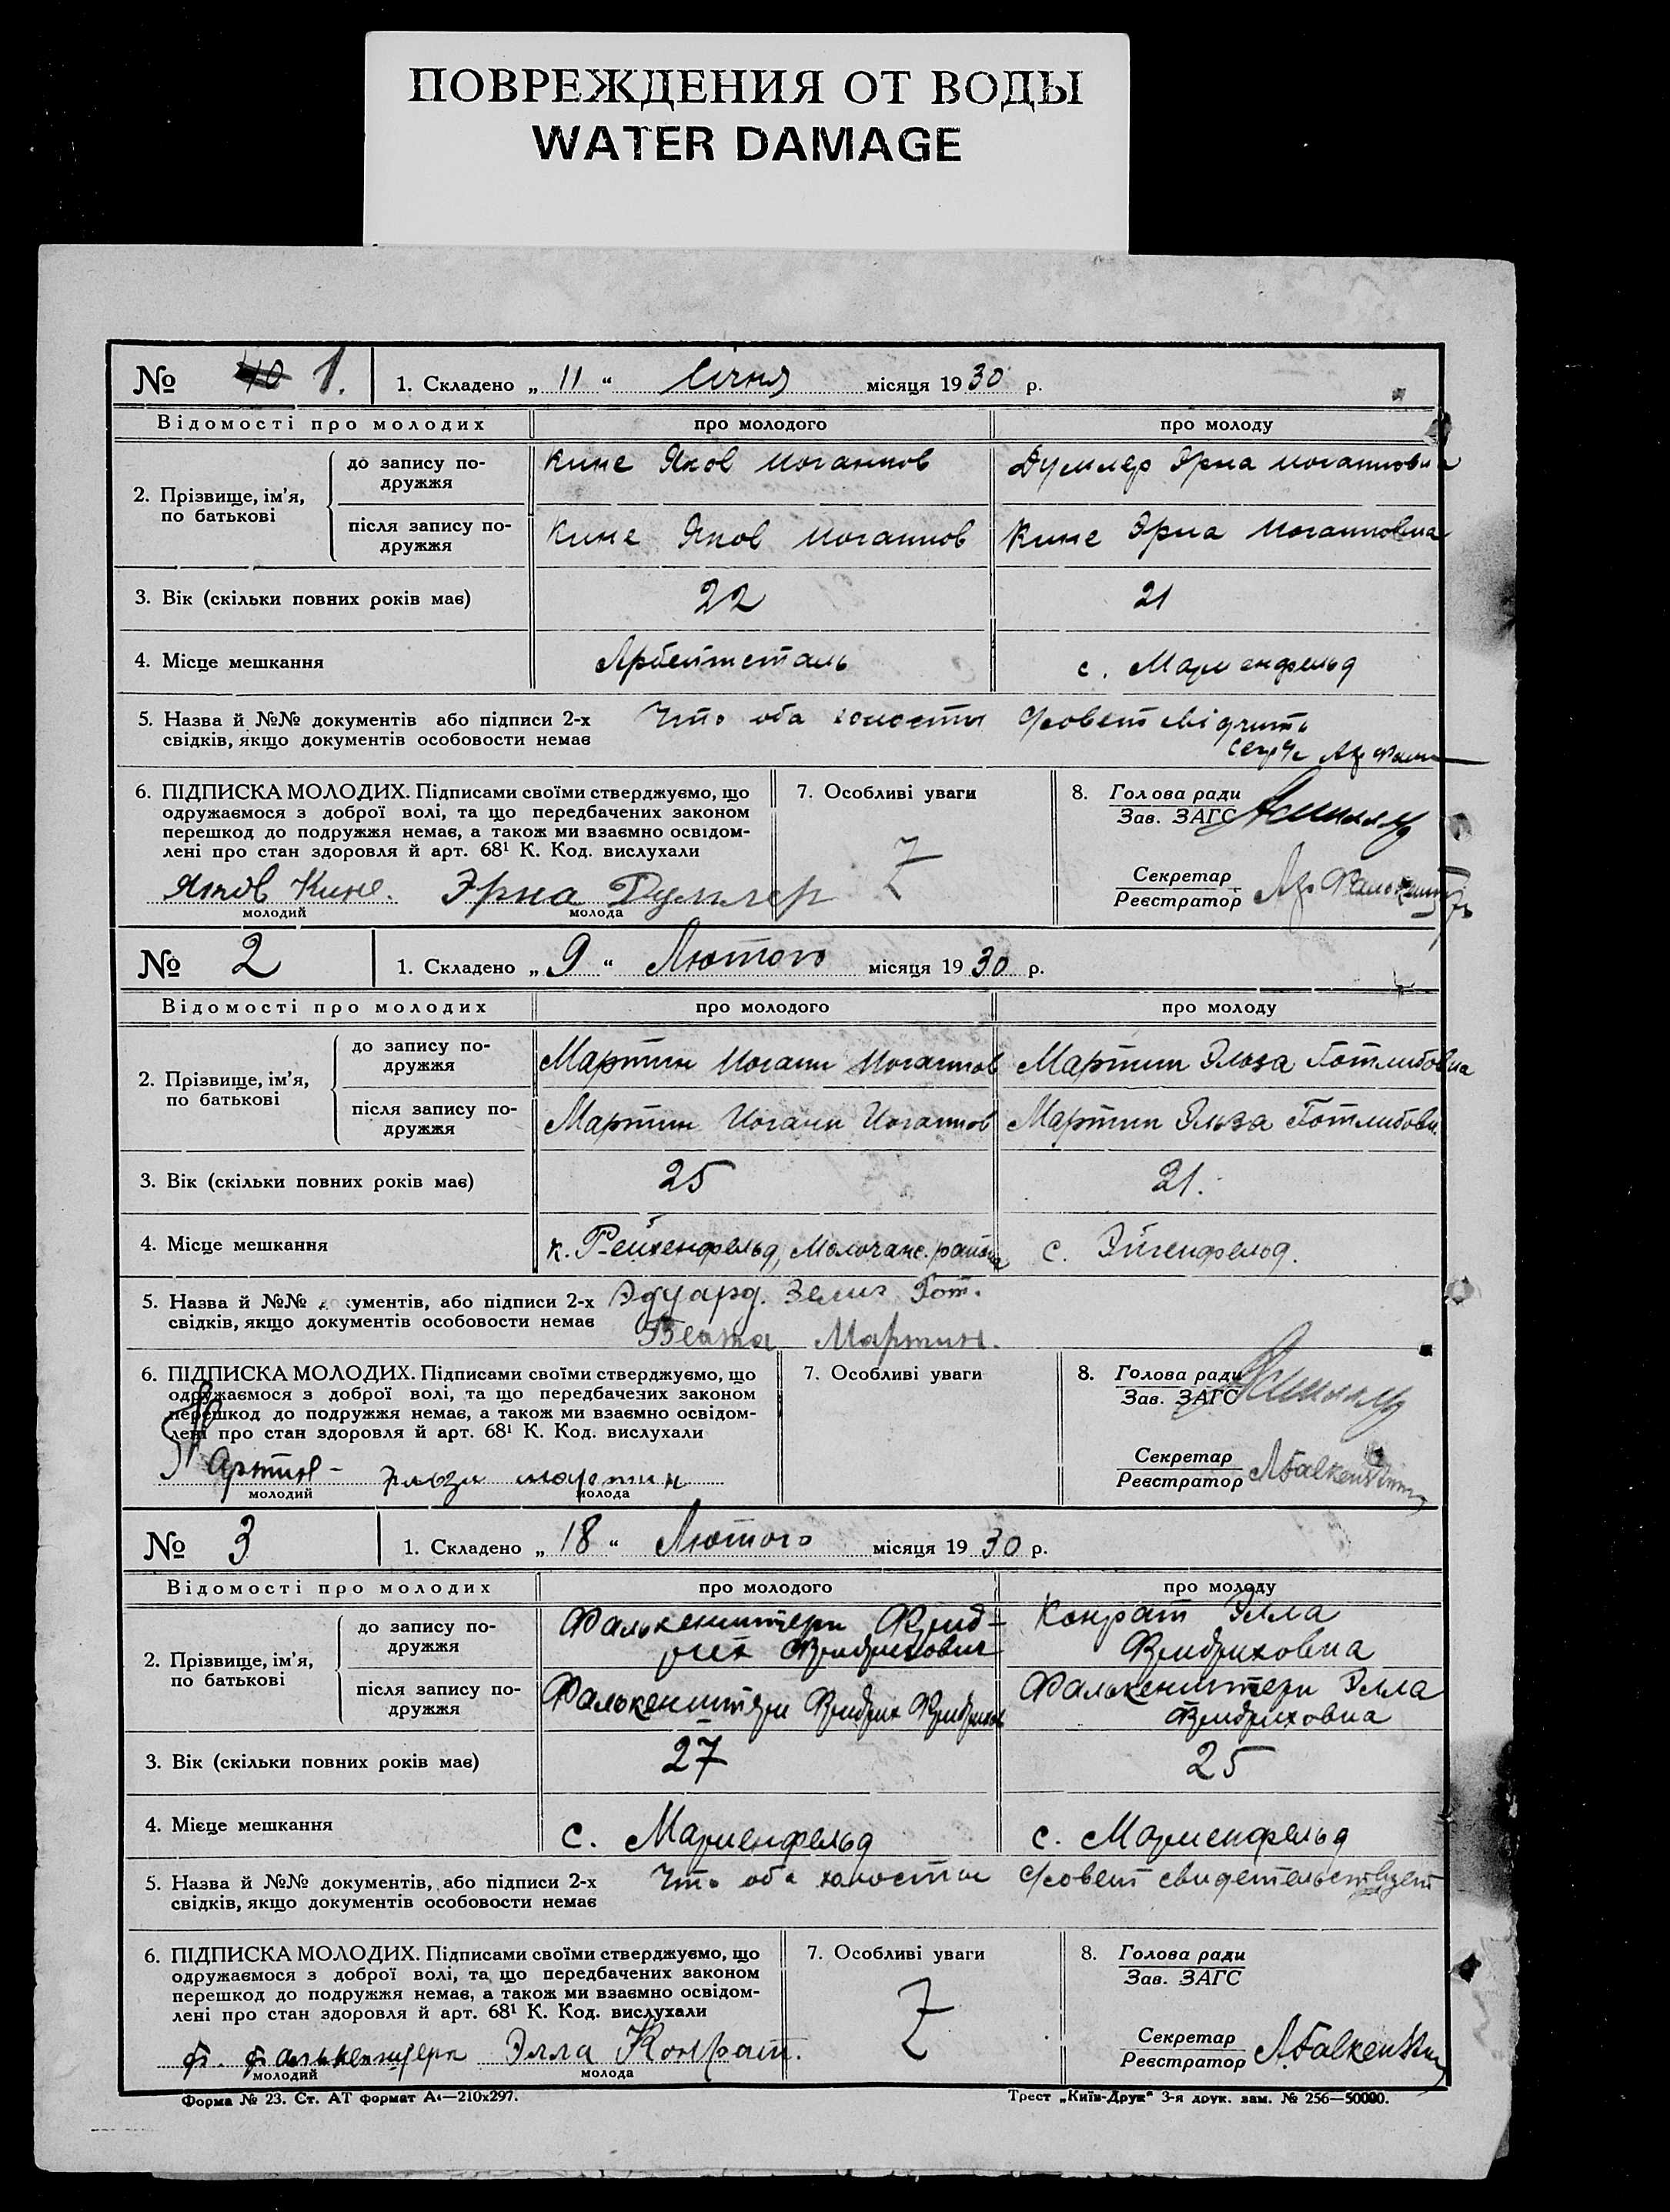 ПОВРЕЖДЕНИЯ ОТ ВОДЫ
WATER DAMAGE
№ 1. 1. Складено „ 11 “ Січня місяця 19 30 р.
Відомості про молодих про молодого про молоду
2. Прізвище, ім’я, по батькові
до запису подружжя Кине Яков Иоганнов Думлер Эрна Иоганновна
після запису подружжя Кине Яков Иоганнов Кине Эрна Иоганновна
3. Вік (скільки повних років має) 22 21
4. Місце мешкання Арбейтсталь с. Мариенфельд
5. Назва й №№ документів або підписи 2-х Что оба холосты
свідків, якщо документів особовости немає
6. ПІДПИСКА МОЛОДИХ. Підписами своїми стверджуємо, що 7. Особливі уваги 8. Голова ради
одружаємося з доброї волі, та що передбачених законом Зав. ЗАГС
перешкод до подружжя немає, а також ми взаємно освідом-
лені про стан здоровля й арт. 68¹ К. Код. вислухали Z
Секретар
Яков Кине. Эрна Думлер Реєстратор
молодий молода
№ 2 1. Складено „ 9 “ Лютого місяця 19 30 р.
Відомості про молодих про молодого про молоду
2. Прізвище, ім’я, по батькові
до запису подружжя Мартин Иоганн Иоганнов Мартин Эльза Готлибовна
після запису подружжя Мартин Иоганн Иоганнов Мартин Эльза Готлибовн.
3. Вік (скільки повних років має) 25 21.
4. Місце мешкання к. Рейхенфельд, Молочанс. района с. Эйгенфельд.
5. Назва й №№ документів, або підписи 2-х Эдуард. Зелиг Гот.
свідків, якщо документів особовости немає Беата Мартин.
6. ПІДПИСКА МОЛОДИХ. Підписами своїми стверджуємо, що 7. Особливі уваги 8. Голова ради
одружаємося з доброї волі, та що передбачених законом Зав. ЗАГС
перешкод до подружжя немає, а також ми взаємно освідом-
лені про стан здоровля й арт. 68¹ К. Код. вислухали
Секретар
Мартин мартин Реєстратор AFalkenstern
молодий молода
№ 3 1. Складено „ 18 “ Лютого місяця 19 30 р.
Відомості про молодих про молодого про молоду
2. Прізвище, ім’я, по батькові
до запису подружжя Фалькенштерн Фрид- Конрат Элла
рих Фридрихович Фридриховна
після запису подружжя Фалькенштерн Фридрих Фридрихов Фалькенштерн Элла
Фридриховна
3. Вік (скільки повних років має) 27 25
4. Місце мешкання с. Мариенфельд с. Мариенфельд
5. Назва й №№ документів, або підписи 2-х Что оба холосты с/совет свидетельствует
свідків, якщо документів особовости немає
6. ПІДПИСКА МОЛОДИХ. Підписами своїми стверджуємо, що 7. Особливі уваги 8. Голова ради
одружаємося з доброї волі, та що передбачених законом Зав. ЗАГС
перешкод до подружжя немає, а також ми взаємно освідом-
лені про стан здоровля й арт. 68¹ К. Код. вислухали Z
Секретар
Ф. Фалькенштерн Элла Конрат. Реєстратор AFalkenstern
молодий молода
Форма № 23. Ст. АТ формат А₄—210х297. Трест „Київ-Друк“ 3-я друк. зам. № 256—50000.